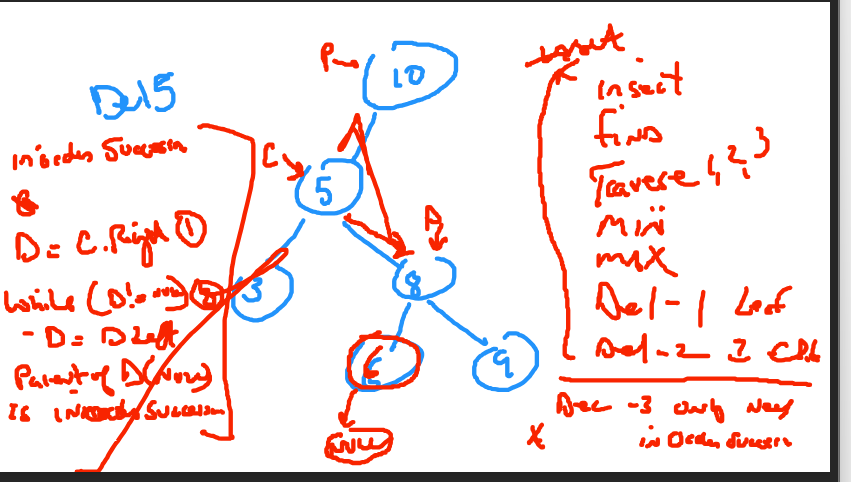 Del 5
inorder Successor
D = C.Right ①
while (D != null)
- D = D Left
Parent of D (Null)
Is inorder Successor
P
10
C
5
D
3
8
6
9
NULL
insert
find
Traverse 1, 2, 3
Min
max
Del - 1 Leaf
Del - 2
Del - 3 only need
x inorder Successor